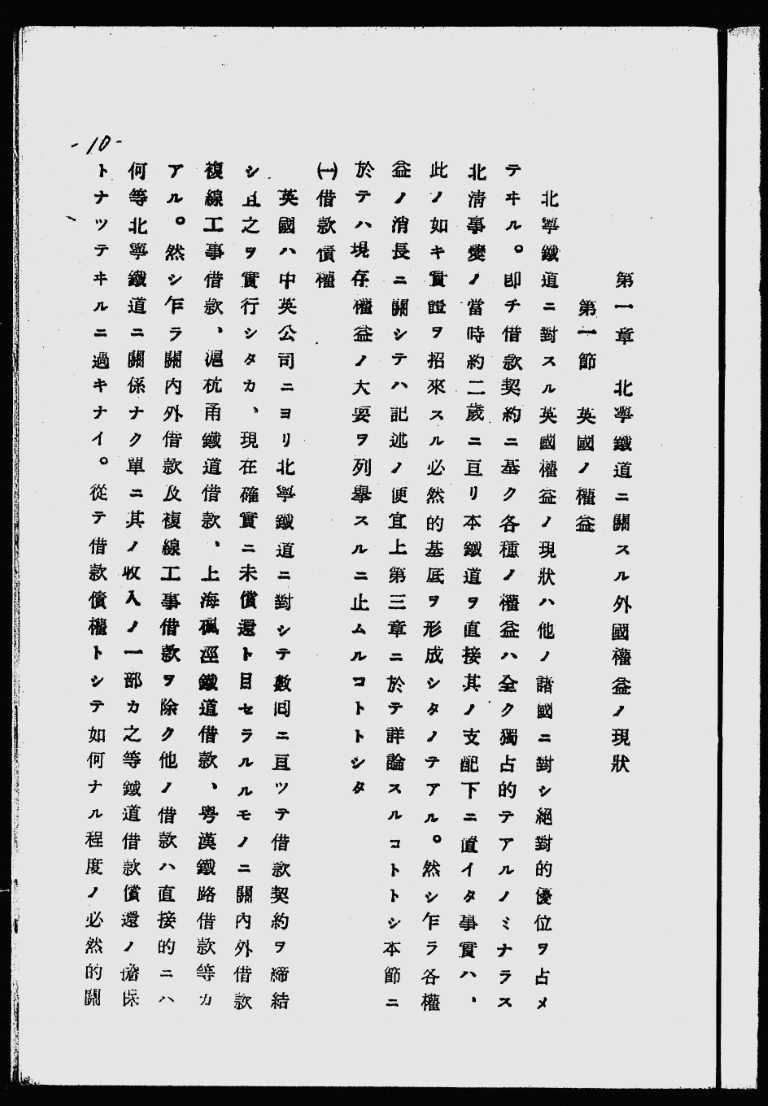 第一章　北寧鐵道ニ關スル外國權益ノ現狀
第一節　英國ノ權益
北寧鐵道ニ對スル英國權益ノ現狀ハ他ノ諸國ニ對シ絕對的優位ヲ占メ
テヰル。卽チ借款契約ニ基ク各種ノ權益ハ全ク獨占的テアルノミナラス
北淸事變ノ當時約二歲ニ亘リ本鐵道ヲ直接其ノ支配下ニ置イタ事實ハ、
此ノ如キ實證ヲ招來スル必然的基底ヲ形成シタノテアル。然シ乍ラ各權
益ノ消長ニ關シテハ記述ノ便宜上第三章ニ於テ詳論スルコトトシ本節ニ
於テハ現存權益ノ大要ヲ列擧スルニ止ムルコトトシタ
㈠借款債權
英國ハ中英公司ニヨリ北寧鐵道ニ對シテ數囘ニ亘ツテ借款契約ヲ締結
シ且之ヲ實行シタカ、現在確實ニ未償還ト目セラルルモノニ關內外借款
複線工事借款、滬杭甬鐵道借款、上海楓涇鐵道借款、粤漢鐵路借款等カ
アル。然シ乍ラ關內外借款及複線工事借款ヲ除ク他ノ借款ハ直接的ニハ
何等北寧鐵道ニ關係ナク單ニ其ノ收入ノ一部カ之等鐵道借款償還ノ擔保
トナツテヰルニ過キナイ。從テ借款債權トシテ如何ナル程度ノ必然的關
-10-